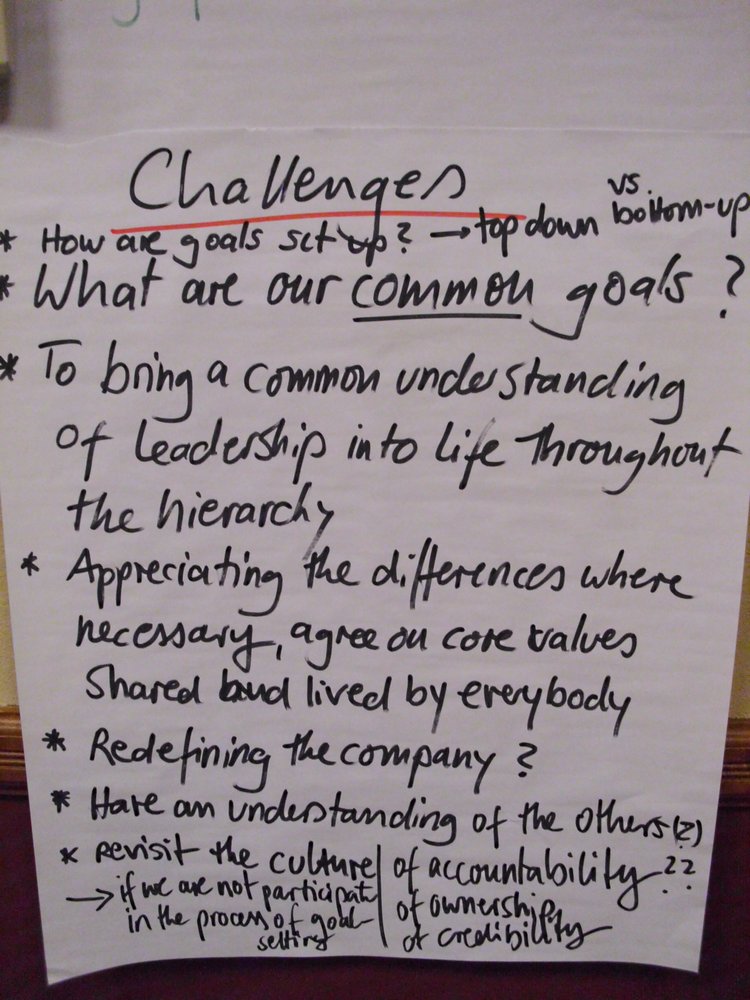 Challenges
* How are goals set up? → top down vs. bottom-up
* What are our common goals ?
* To bring a common understanding
of leadership into life throughout
the hierarchy
* Appreciating the differences where
necessary, agree on core values
shared and lived by everybody
* Redefining the company ?
* Have an understanding of the others(?)
* revisit the culture | of accountability ??
→ if we are not participate | of ownership
in the process of goal- | of credibility
setting